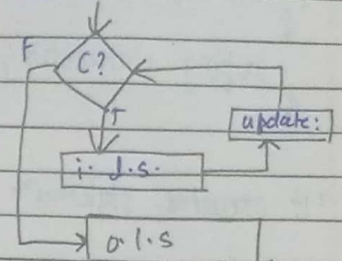 F
C?
T
update:
i. l. s.
o. l. s